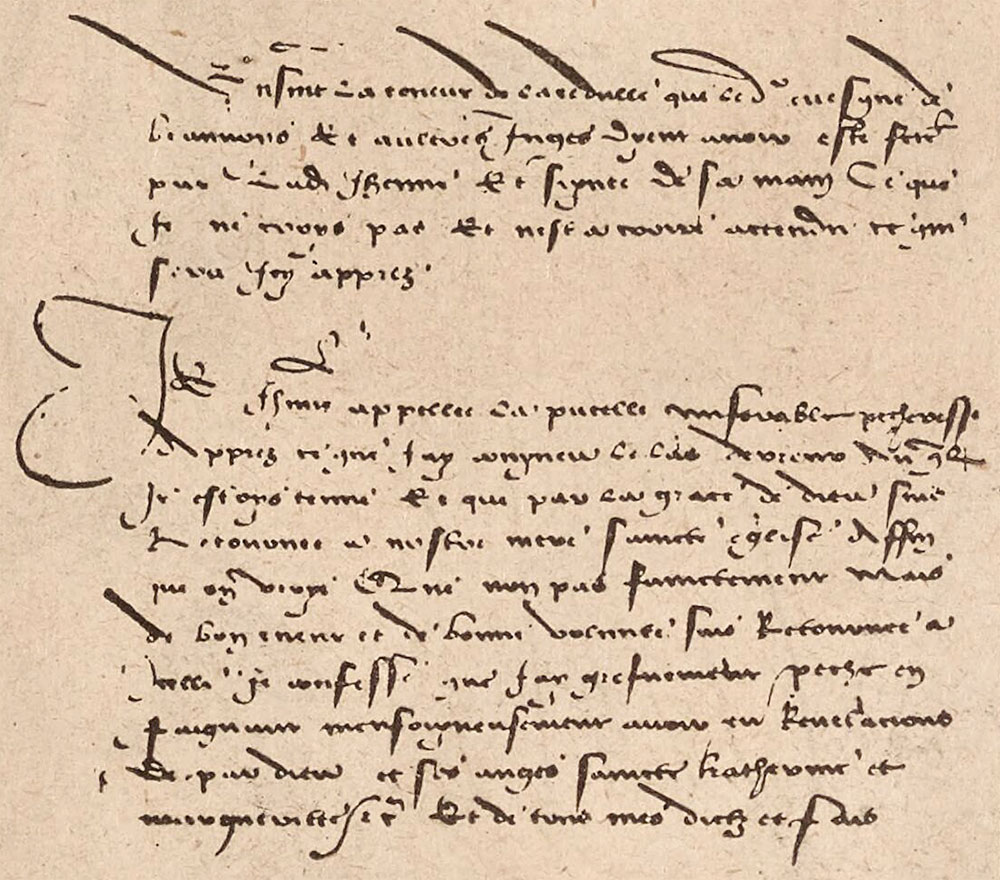 Ensuit la teneur de la cedulle que led evesque de
beauvais Et aultres Juges dyent avoir este fete
par lad Jhenne Et signee de sa main Ce que
Je ne croys pas Et nest a croire actendu ce qui
sera Icy appres
Je Jhenne appellee la pucelle miserable pecheresse
Appres ce que Jay congneu le las derreur auquel
Je estoys tenue Et que par la grace de dieu suis
Retournee a nostre mere saincte eglise Affin
que on voye Que non pas fainctement Mais
de bon cueur et de bonne volunte suis Retournee a
Icelle Je confesse que Jay griefvement peche en
faignant mensongneusement avoir eu Revelacions
de par dieu et ses anges saincte katherine et
margueritte etc Et de tous mes dictz et fais